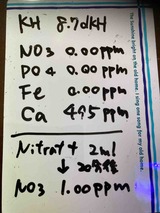 KH 8.7dKH
NO3 0.00ppm
PO4 0.00ppm
Fe 0.00ppm
Ca 495ppm
Nitrat+ 2ml
↓ 20分後
NO3 1.00ppm
The sunshine bright on the old home. I sing one song for my old home.